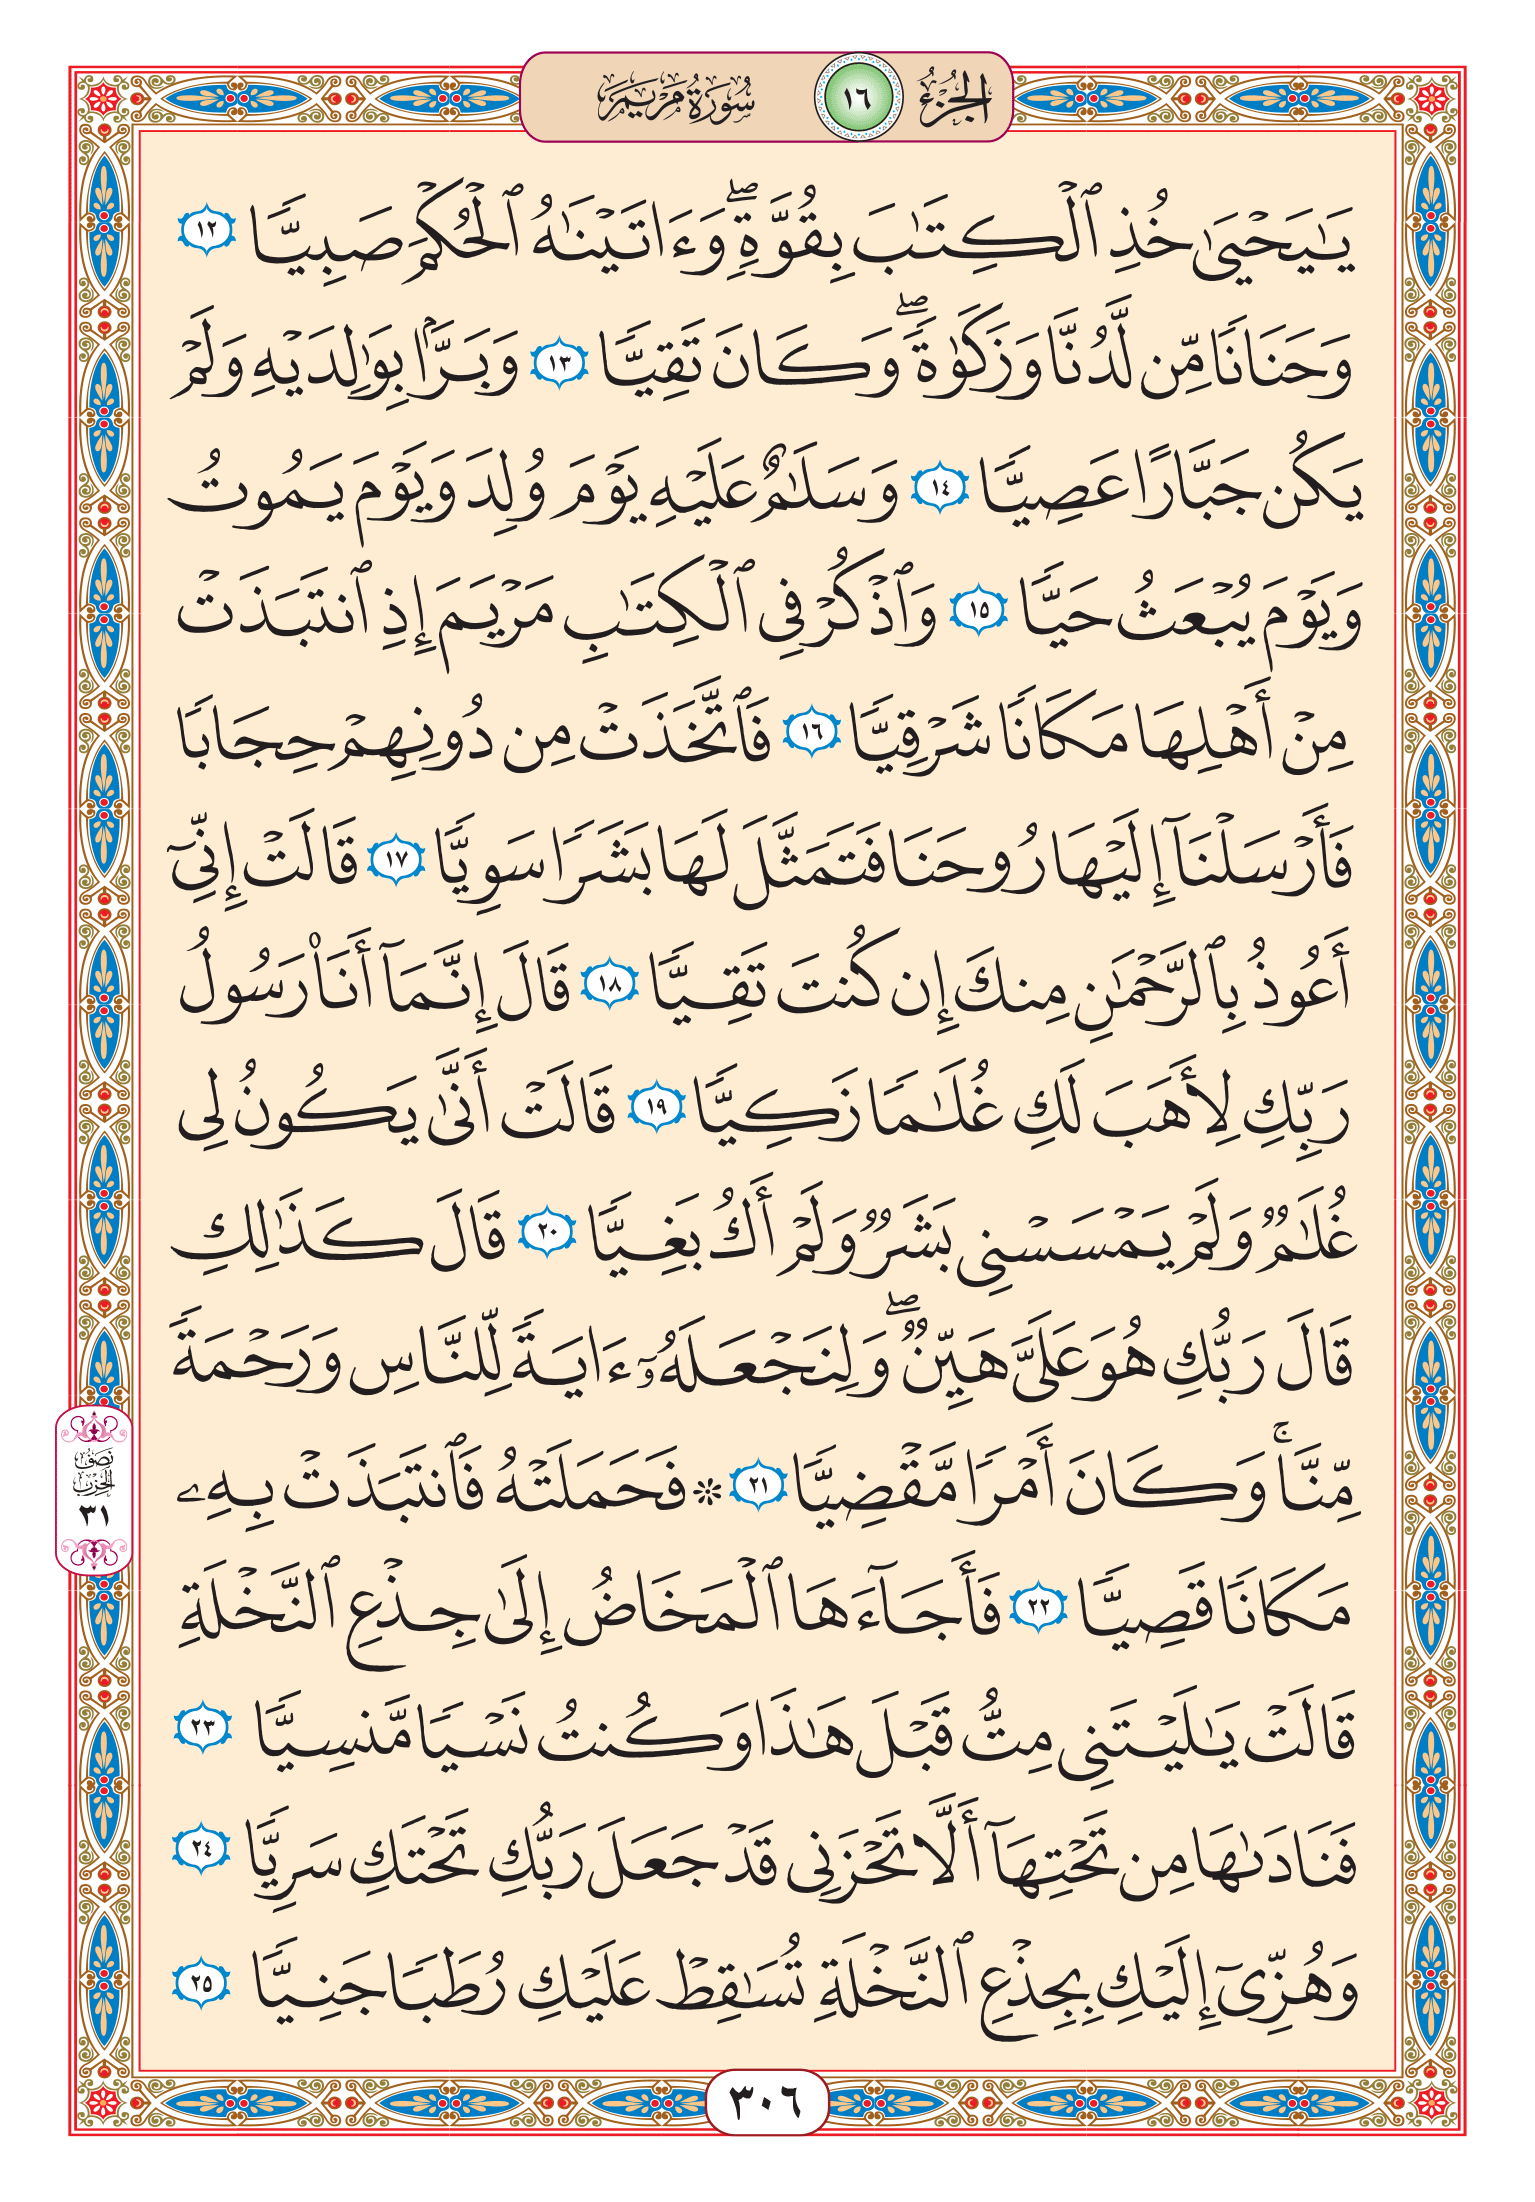 الجزء ١٦ سورة مريم
يَٰيَحْيَىٰ خُذِ ٱلْكِتَٰبَ بِقُوَّةٍۖ وَءَاتَيْنَٰهُ ٱلْحُكْمَ صَبِيًّا ١٢
وَحَنَانًا مِّن لَّدُنَّا وَزَكَوٰةًۖ وَكَانَ تَقِيًّا ١٣ وَبَرًّۢا بِوَٰلِدَيْهِ وَلَمْ
يَكُن جَبَّارًا عَصِيًّا ١٤ وَسَلَٰمٌ عَلَيْهِ يَوْمَ وُلِدَ وَيَوْمَ يَمُوتُ
وَيَوْمَ يُبْعَثُ حَيًّا ١٥ وَٱذْكُرْ فِى ٱلْكِتَٰبِ مَرْيَمَ إِذِ ٱنتَبَذَتْ
مِنْ أَهْلِهَا مَكَانًا شَرْقِيًّا ١٦ فَٱتَّخَذَتْ مِن دُونِهِمْ حِجَابًا
فَأَرْسَلْنَآ إِلَيْهَا رُوحَنَا فَتَمَثَّلَ لَهَا بَشَرًا سَوِيًّا ١٧ قَالَتْ إِنِّىٓ
أَعُوذُ بِٱلرَّحْمَٰنِ مِنكَ إِن كُنتَ تَقِيًّا ١٨ قَالَ إِنَّمَآ أَنَا۠ رَسُولُ
رَبِّكِ لِأَهَبَ لَكِ غُلَٰمًا زَكِيًّا ١٩ قَالَتْ أَنَّىٰ يَكُونُ لِى
غُلَٰمٌ وَلَمْ يَمْسَسْنِى بَشَرٌ وَلَمْ أَكُ بَغِيًّا ٢٠ قَالَ كَذَٰلِكِ
قَالَ رَبُّكِ هُوَ عَلَىَّ هَيِّنٌۖ وَلِنَجْعَلَهُۥٓ ءَايَةً لِّلنَّاسِ وَرَحْمَةً
مِّنَّاۚ وَكَانَ أَمْرًا مَّقْضِيًّا ٢١ ۞ فَحَمَلَتْهُ فَٱنتَبَذَتْ بِهِۦ
مَكَانًا قَصِيًّا ٢٢ فَأَجَآءَهَا ٱلْمَخَاضُ إِلَىٰ جِذْعِ ٱلنَّخْلَةِ
قَالَتْ يَٰلَيْتَنِى مِتُّ قَبْلَ هَٰذَا وَكُنتُ نَسْيًا مَّنسِيًّا ٢٣
فَنَادَىٰهَا مِن تَحْتِهَآ أَلَّا تَحْزَنِى قَدْ جَعَلَ رَبُّكِ تَحْتَكِ سَرِيًّا ٢٤
وَهُزِّىٓ إِلَيْكِ بِجِذْعِ ٱلنَّخْلَةِ تُسَٰقِطْ عَلَيْكِ رُطَبًا جَنِيًّا ٢٥
نصف
الحزب
٣١
٣٠٦